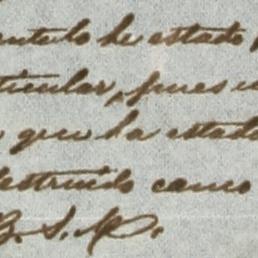 he estado
ticular, pues
que ha estado
destruido como
B. S. M.